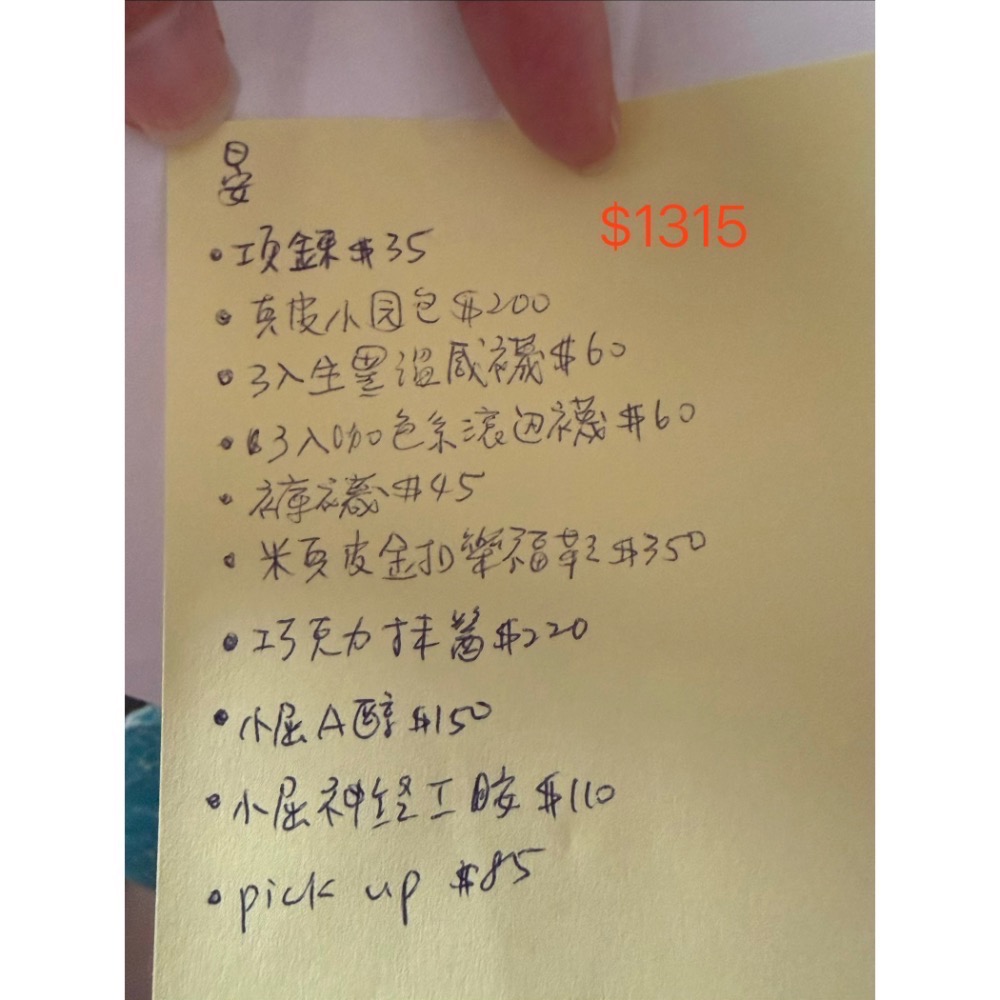 晏
$1315
• 項鍊 $35
• 真皮小园包 $200
• 3入生畾溫感襪 $60
• 3入咖色系滾边襪 $60
• 褲襪 $45
• 米真皮金扣樂福鞋 $350
• 巧克力抹醬 $220
• 小屈A醇 $150
• 小屈神經工胺 $110
• pick up $85